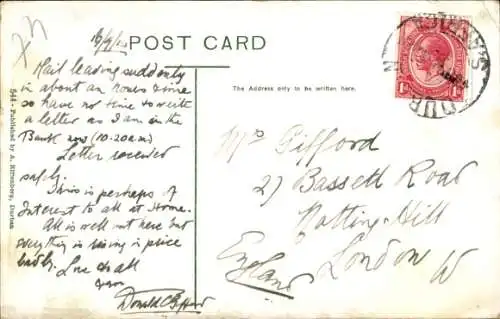 POST CARD
Mail leaving suddenly
in about an hours time
so have no time to write
a letter as I am in the
Bank now (10.20am)
Letter received
safely.
This is perhaps of
Interest to all at Home.
All is well out here but
everything is rising in price
badly. Love to all
from
Donald Gifford
544 - Published by A. Rittenberg, Durban
The Address only to be written here.
Mrs Gifford
27 Bassett Road
Notting Hill
London W
England
DURBAN
1d